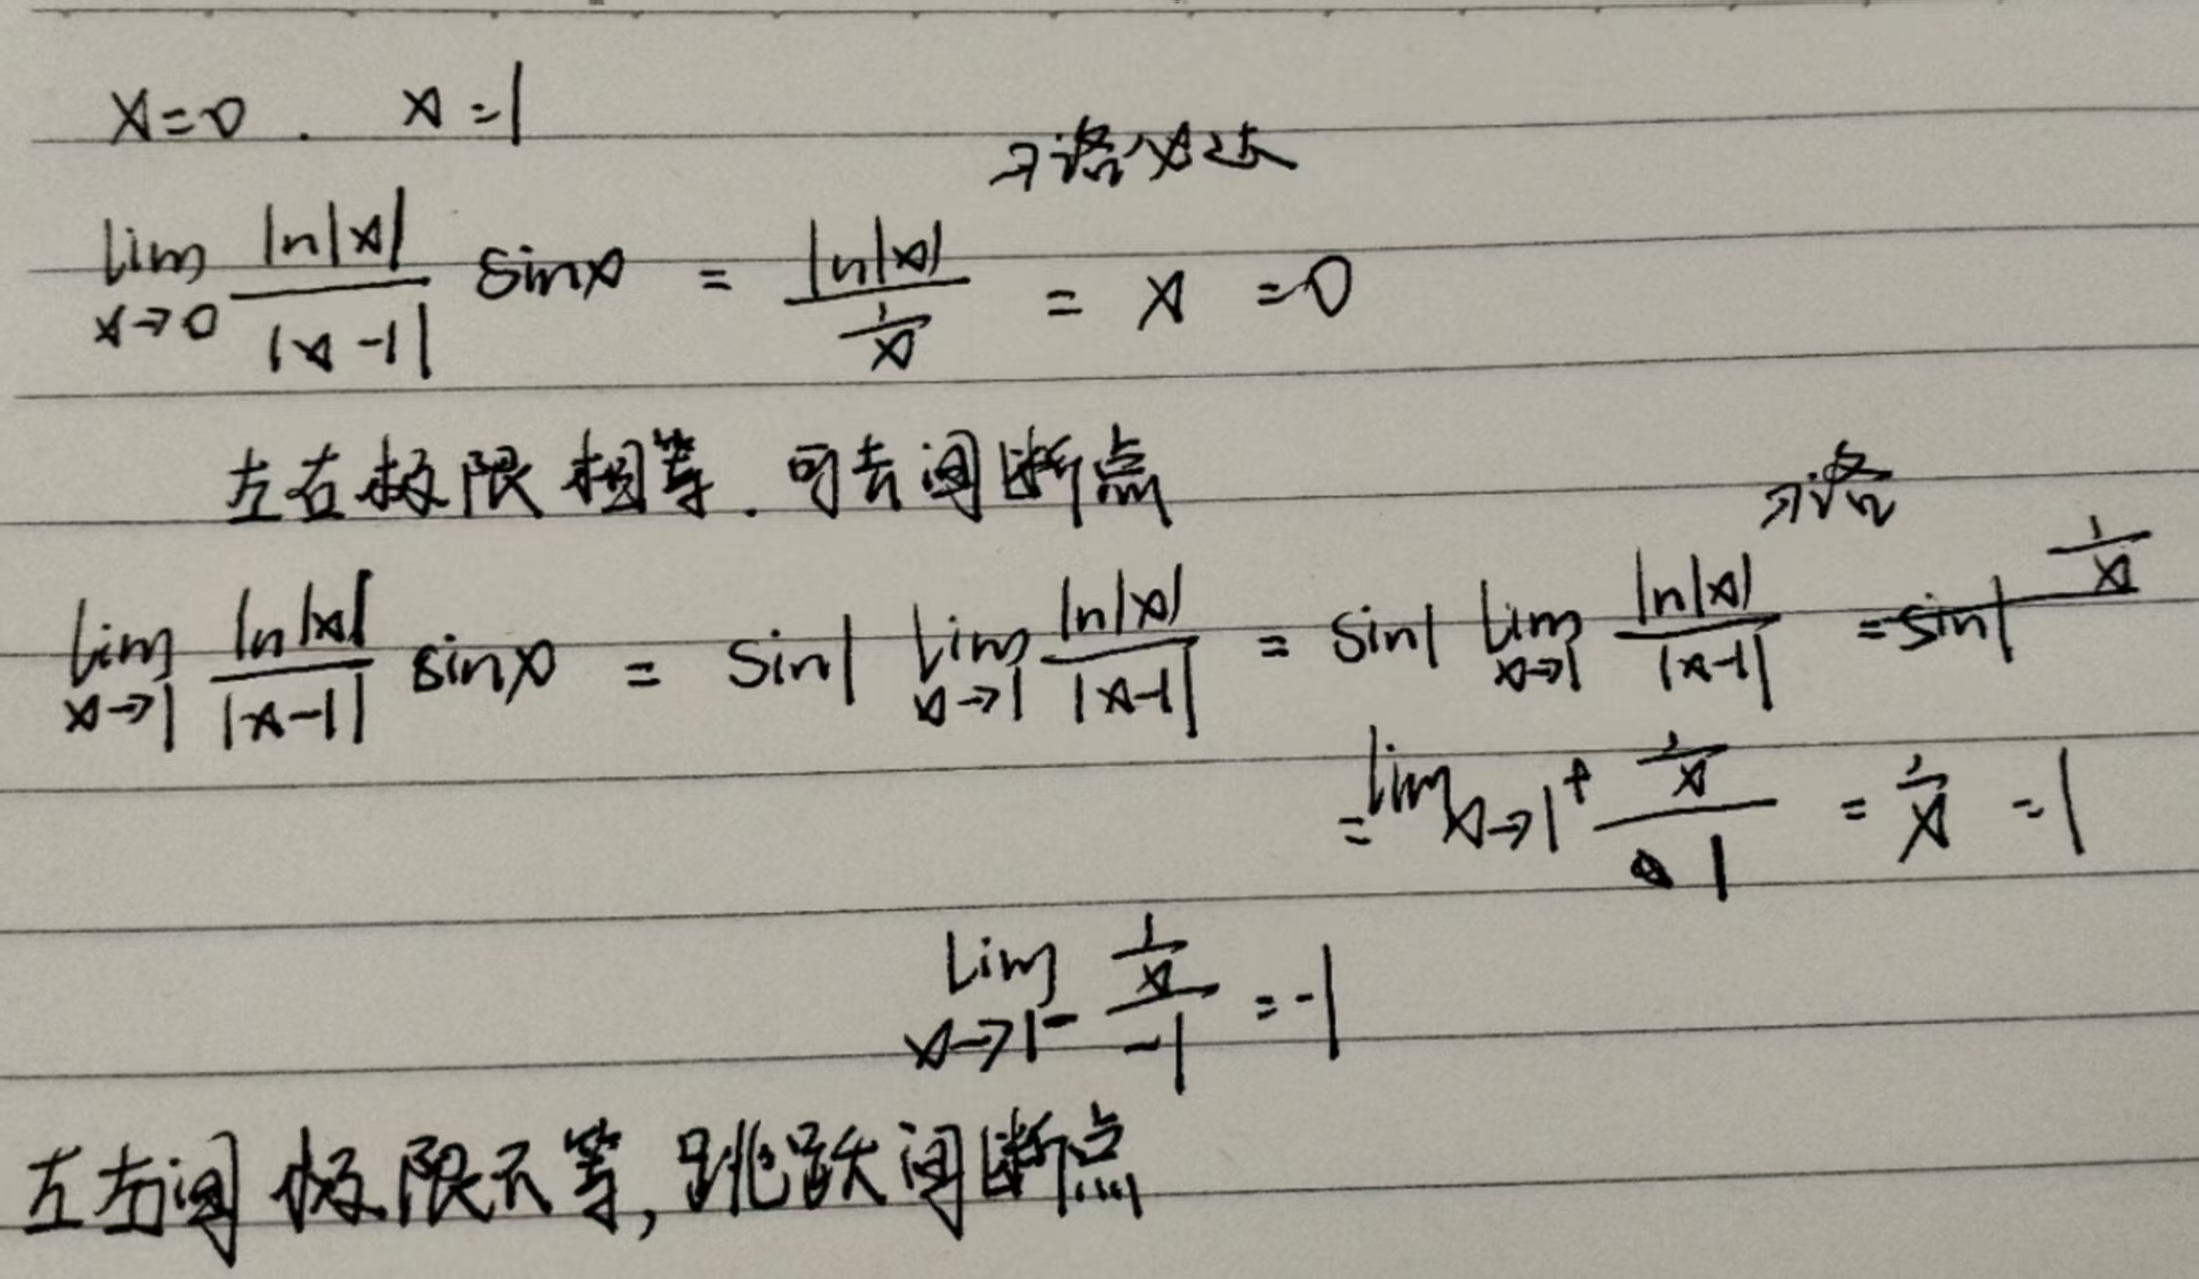 x=0 . x=1
用洛必达
lim x→0 ln|x| / |x-1| sinx = ln|x| / (1/x) = x =0
左右极限相等. 可去间断点
用洛
lim x→1 ln|x| / |x-1| sinx = sin1 lim x→1 ln|x| / |x-1| = sin1 lim x→1 ln|x| / |x-1| =sin1 1/x
=lim x→1⁺ (1/x) / 1 = 1/x =1
lim x→1⁻ (1/x) / -1 =-1
左右间极限不等,跳跃间断点